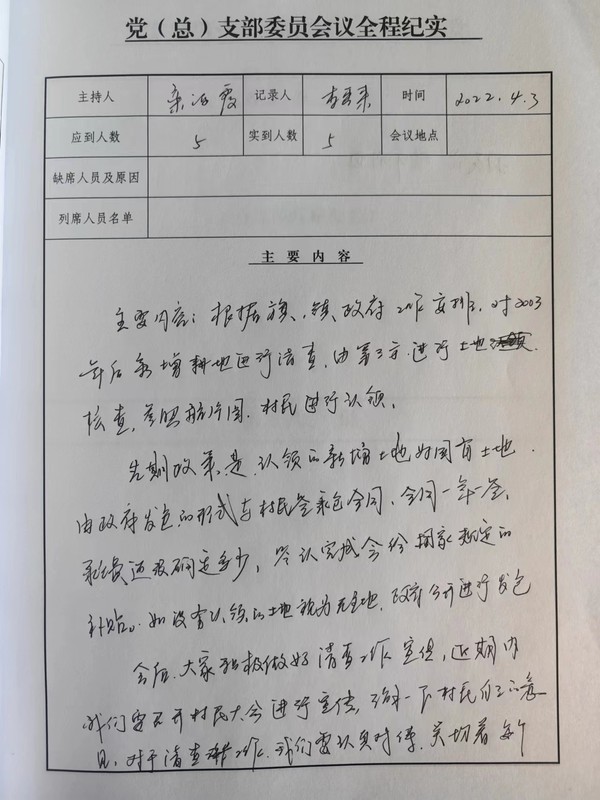 党（总）支部委员会议全程纪实
主持人 记录人 时间 2022.4.3
应到人数 5 实到人数 5 会议地点
缺席人员及原因
列席人员名单
主要内容
主要内容：根据旗、镇政府工作安排，对2003
年后新增耕地进行清查，由第三方进行土地
核查，参照航片图，村民进行认领。
先期政策是，认领的新增土地如国有土地，
由政府发包的形式与村民签承包合同，合同一年一签，
承缴还没确定多少，等认完成会给国家规定的
补贴。如没有认领的土地视为无主地，政府公开进行发包
会后，大家积极做好清查工作宣传，近期内
我们要召开村民大会进行宣传，了解一下村民的意
见，对于清查工作，我们要认真对待，关切着每个